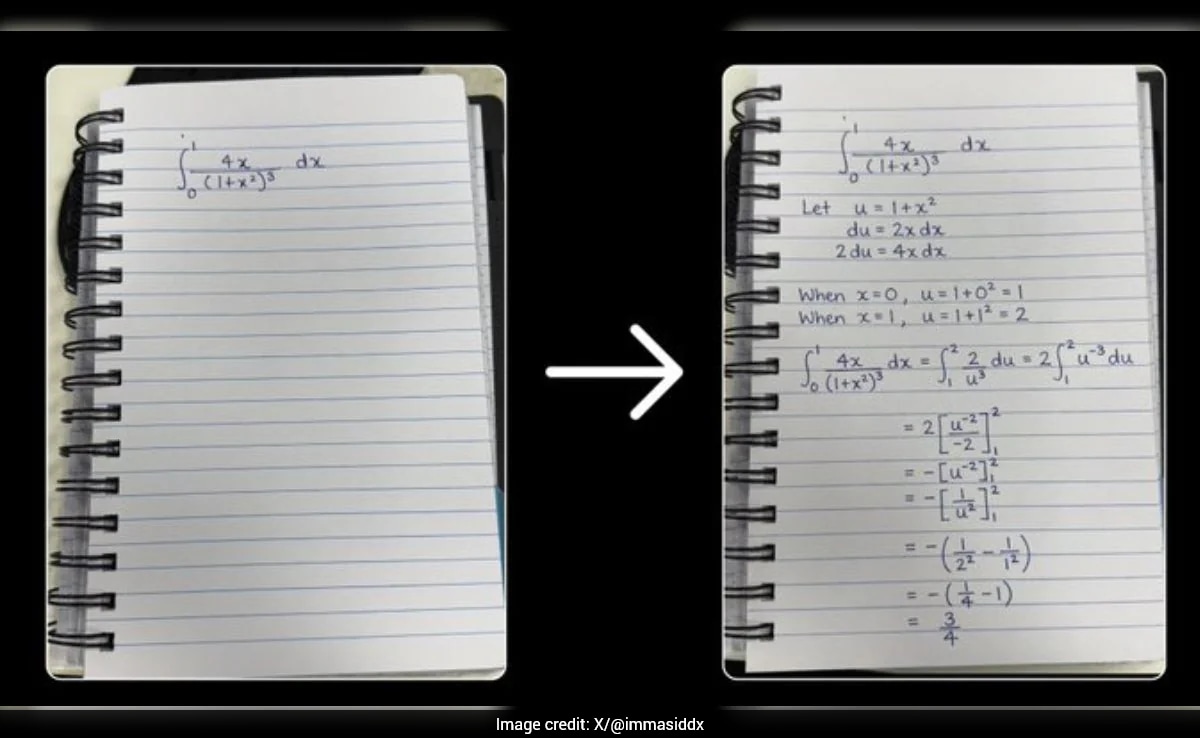 ∫₀¹ 4x/(1+x²)³ dx
∫₀¹ 4x/(1+x²)³ dx
Let u = 1+x²
du = 2x dx
2du = 4x dx
When x=0, u=1+0²=1
When x=1, u=1+1²=2
∫₀¹ 4x/(1+x²)³ dx = ∫₁² 2/u³ du = 2∫₁² u⁻³ du
= 2[u⁻²/-2]₁²
= -[u⁻²]₁²
= -[1/u²]₁²
= -(1/2² - 1/1²)
= -(1/4 - 1)
= 3/4
Image credit: X/@immasiddx